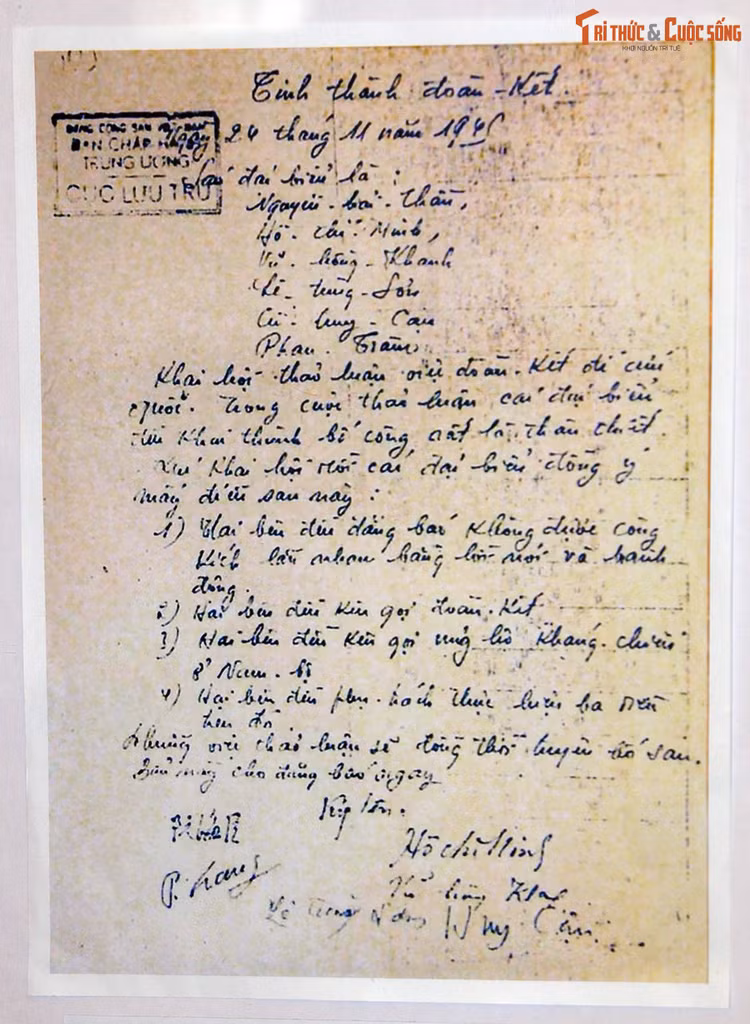 TRI THỨC & CUỘC SỐNG
KHƠI NGUỒN TRI TUỆ
Tinh thành đoàn-Kết.
ĐẢNG CỘNG SẢN VIỆT NAM
BAN CHẤP HÀNH
TRUNG ƯƠNG
CỤC LƯU TRỮ
Ngày 24 tháng 11 năm 1945
Các đại biểu là:
Nguyễn-hải-Thần,
Hồ-chí-Minh,
Vũ-hồng-Khanh
Lê-tùng-Sơn
Cù-huy-Cận
Phan-Trâm
Khai hội thảo luận việc đoàn-Kết để cứu
quốc. Trong cuộc thảo luận các đại biểu
đều Khai thành bố công rất là thân thiết.
Khai hội rồi các đại biểu đồng ý
mấy điều sau này:
1) Hai bên đều đăng báo Không được công
Kích lẫn nhau bằng lời nói và hành
động.
2) Hai bên đều Kêu gọi đoàn-Kết
3) Hai bên đều Kêu gọi ủng hộ Kháng-chiến
ở Nam-bộ
4) Hai bên đều phụ-trách thực hiện ba điều
trên đó
Những việc thảo luận sẽ đồng thời tuyên bố sau.
Bản này cho đăng báo ngay
Ký tên.
Hồ chí Minh
Vũ hồng Khanh
Lê Tùng Sơn Huy Cận